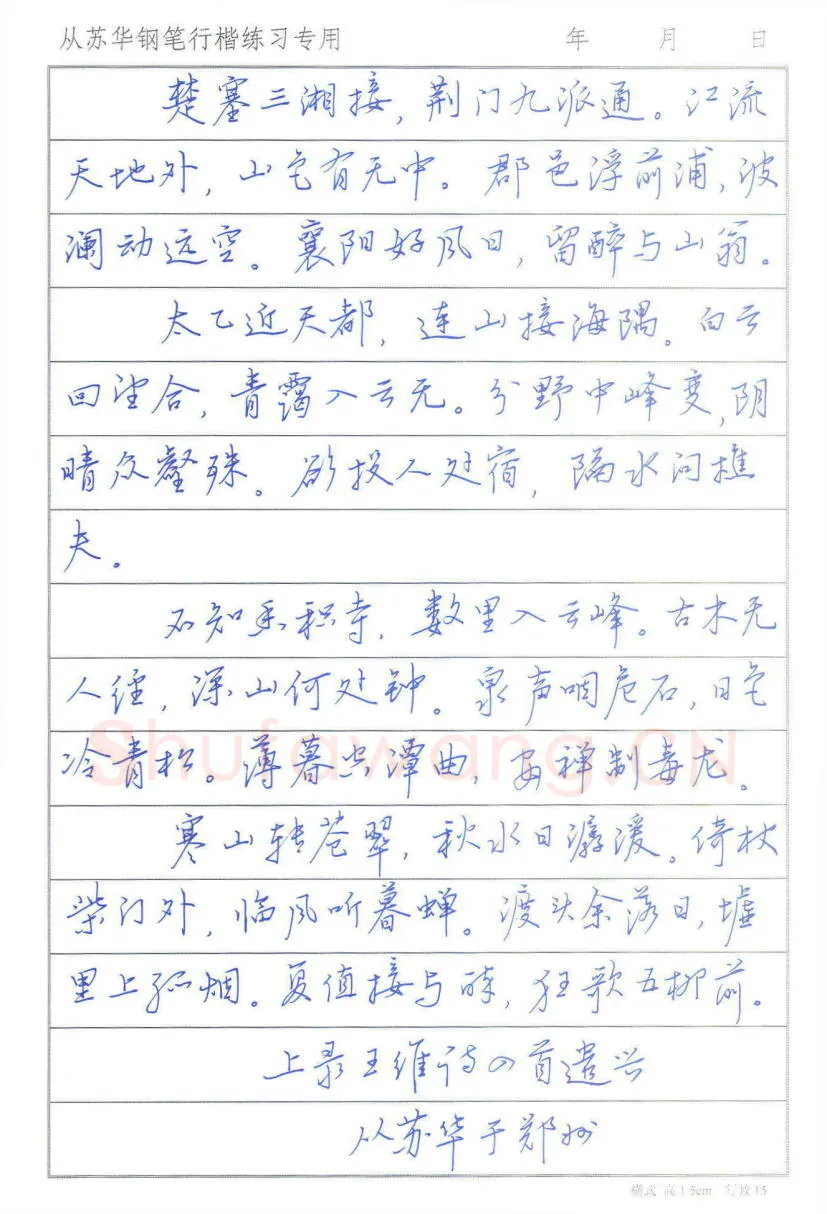 从苏华钢笔行楷练习专用 年 月 日
楚塞三湘接，荆门九派通。江流
天地外，山色有无中。郡邑浮前浦，波
澜动远空。襄阳好风日，留醉与山翁。
太乙近天都，连山接海隅。白云
回望合，青霭入云无。分野中峰变，阴
晴众壑殊。欲投人处宿，隔水问樵
夫。
不知香积寺，数里入云峰。古木无
人径，深山何处钟。泉声咽危石，日色
冷青松。薄暮空潭曲，安禅制毒龙。
寒山转苍翠，秋水日潺湲。倚杖
柴门外，临风听暮蝉。渡头余落日，墟
里上孤烟。复值接与醉，狂歌五柳前。
上录王维诗四首遣兴
从苏华于郑州
Shufawang.CN
横式 高1.5cm 行数15